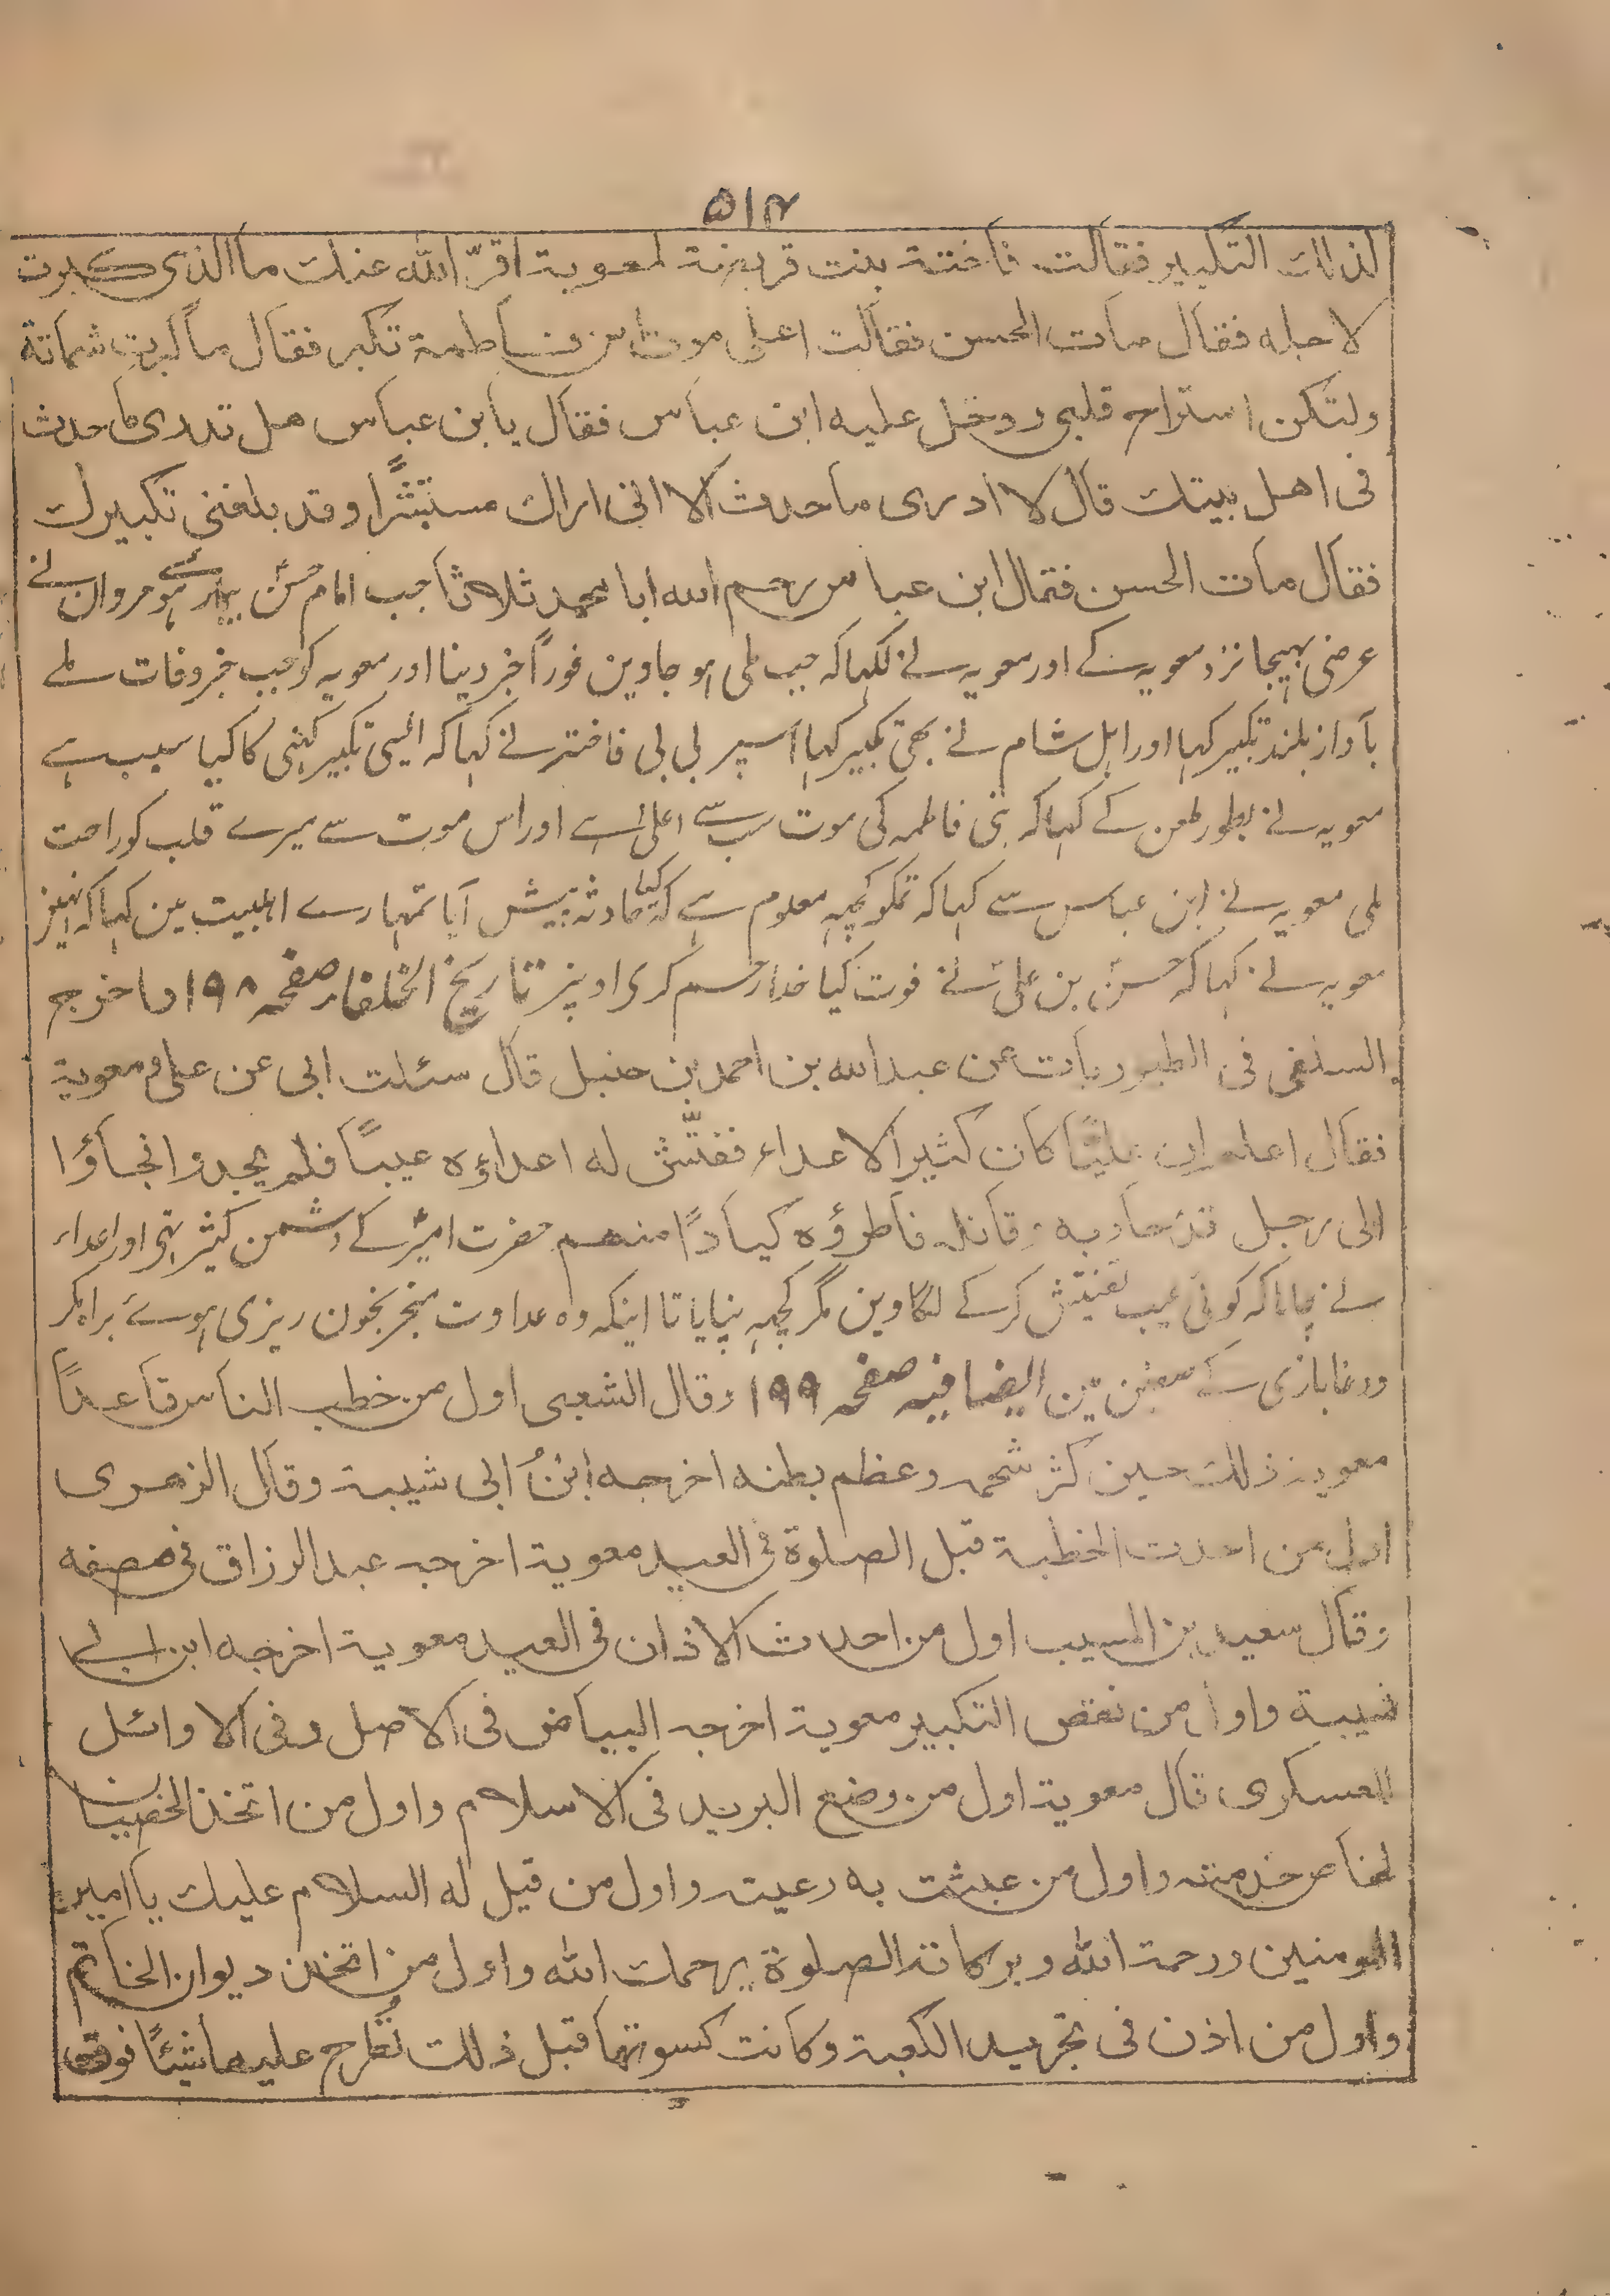 ۵۱۴
لذلك التكبير فقالت فاختة بنت قريضة لمعوية اقرّ الله عنك ما الذى كبرت
لاجله فقال مات الحسن فقالت اعلى موت ابن فاطمة تكبر فقال ما كبرت شماتة
ولكن استراح قلبى ودخل عليه ابن عباس فقال يا بن عباس هل تدرى ما حدث
فى اهل بيتك قال لا ادرى ما حدث الا انى اراك مستبشرًا وقد بلغنى تكبيرك
فقال مات الحسن فقال ابن عباس رحم الله ابا محمد ثلاثا جب امام حسنؑ بیمار ہوئے مروان نے
عرضی بہیجا نزد معویہ کے اور معویہ نے لکہا کہ جب طی ہو جاوین فوراً خبر دینا اور معویہ کو جب خبر وفات ملے
بآواز بلند تکبیر کہا اور اہل شام نے بھی تکبیر کہا اسپر بی بی فاختہ نے کہا کہ ایسی تکبیر کہنی کا کیا سبب ہے
معویہ نے بطور طعن کے کہا کہ بنی فاطمہ کی موت سب سے اعلیٰ ہے اور اس موت سے میرے قلب کو راحت
ملی معویہ نے ابن عباس سے کہا کہ تمکو کچہہ معلوم ہے کہ کیا حادثہ پیش آیا تمہارے اہلبیت مین کہا کہ نہین
معویہ نے کہا کہ حسنؑ بن علیؑ نے فوت کیا خدا رحم کری اوپر تاریخ الخلفاء صفحہ ۱۹۸ واخرج
السلفى فى الطيوريات عن عبدالله بن احمد بن حنبل قال سئلت ابى عن على و معوية
فقال اعلم ان عليًا كان كثير الاعداء ففتّش له اعداؤه عيبًا فلم يجدوا فجاؤا
الى رجل قد حاربه وقاتله فاطرؤه كيادًا منهم حضرت امیرؑ کے دشمن کثیر تہی اور اعداء
نے چاہا کہ کوئی عیب تفتیش کرکے لگاوین مگر کچہہ نپایا تا اینکہ وہ عداوت منجر بخون ریزی ہوئے براہ مکر
ودغا بازی کے معنین مین ایضا فیہ صفحہ ۱۹۹ وقال الشعبى اول من خطب الناس قاعدًا
معوية ذلك حين كثر شحمه وعظم بطنه اخرجه ابنُ ابى شيبة وقال الزهرى
اول من احدث الخطبة قبل الصلوة فى العيد معوية اخرجه عبدالرزاق فى مصفه
وقال سعيد بن المسيب اول من احدث الاذان فى العيد معوية اخرجه ابن ابى
شيبة واول من نقص التكبير معوية اخرجه البياض فى الاصل وفى الاوائل
للعسكرى قال معوية اول من وضع البريد فى الاسلام واول من اتخذ الخصيان
لخاص خدمته واول من عبثت به رعيته واول من قيل له السلام عليك يا امير
المومنين ورحمة الله وبركاته الصلوة يرحمك الله واول من اتخذ ديوان الخاتم
واول من اذن فى تجريد الكعبة وكانت كسوتها قبل ذلك تُطرح عليها شيئًا فوق